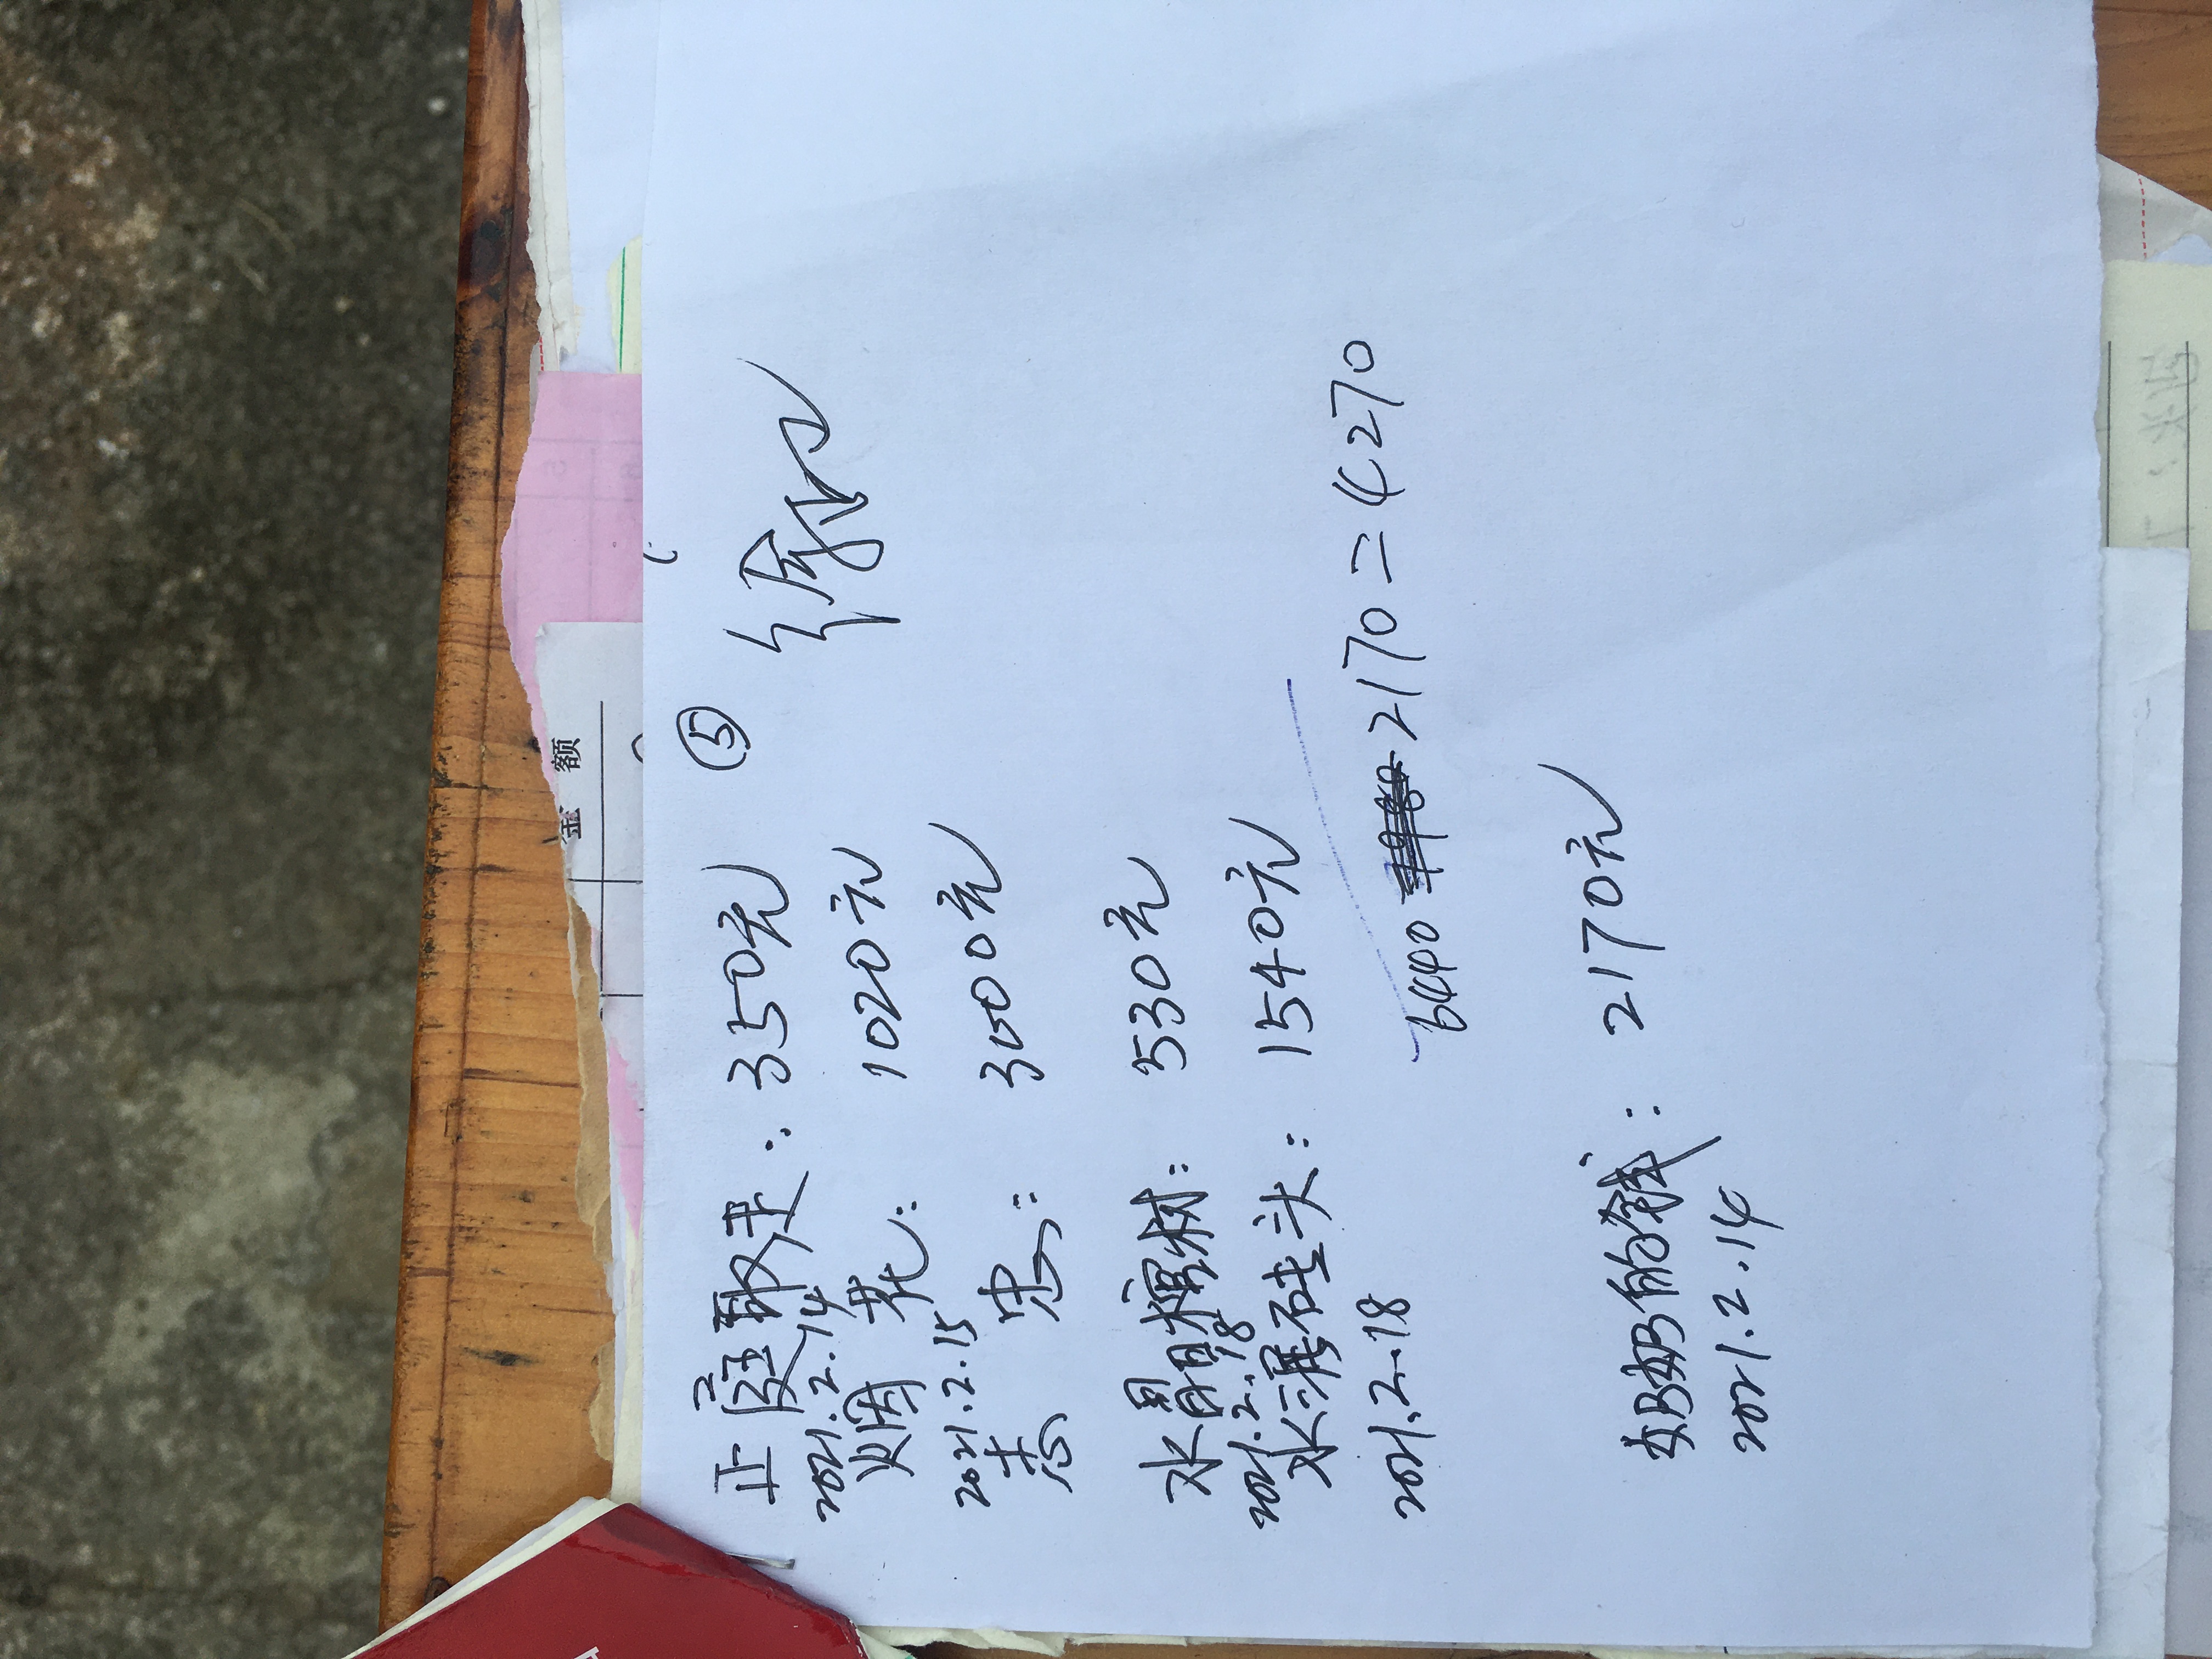 金 额
正庭取走: 350元 ⑤
2021.2.14
烟 花: 1020元
2021.2.15
志 忠: 3000元
水晶棺材: 530元
2021.2.18
水泥砖头: 1540元
2021.2.18
6440 2170=4270
奶奶的钱: 2170元
2021.2.14